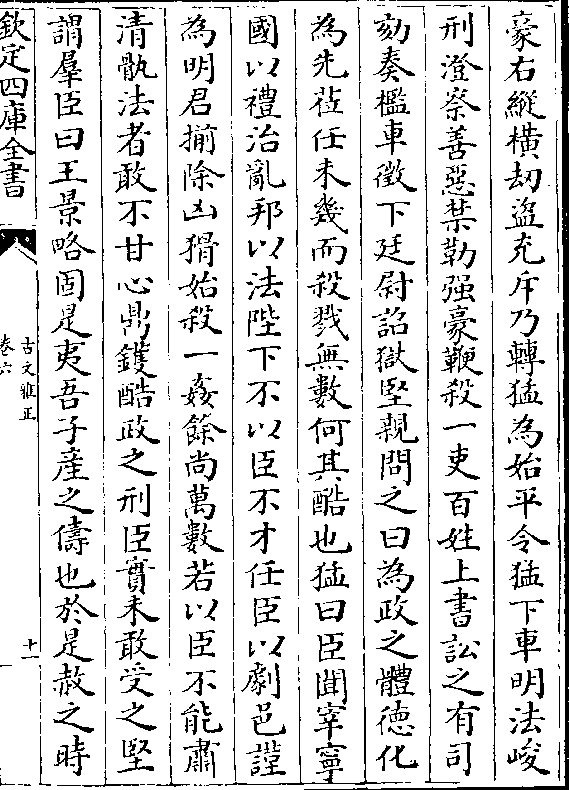 豪右縱横刼盜充斥乃轉猛為始平令猛下車明法峻
刑澄察善惡禁勒强豪鞭殺一吏百姓上書訟之有司
劾奏檻車徵下廷尉詔獄堅親問之曰為政之體徳化
為先莅任未幾而殺戮無數何其酷也猛曰臣聞宰寧
國以禮治亂邦以法陛下不以臣不才任臣以劇邑謹
為明君揃除凶猾始殺一姦餘尚萬數若以臣不能肅
清軌法者敢不甘心鼎鑊酷政之刑臣實未敢受之堅
謂羣臣曰王景略固是夷吾子産之儔也於是赦之時
欽定四庫全書
古文雅正
卷六
十一